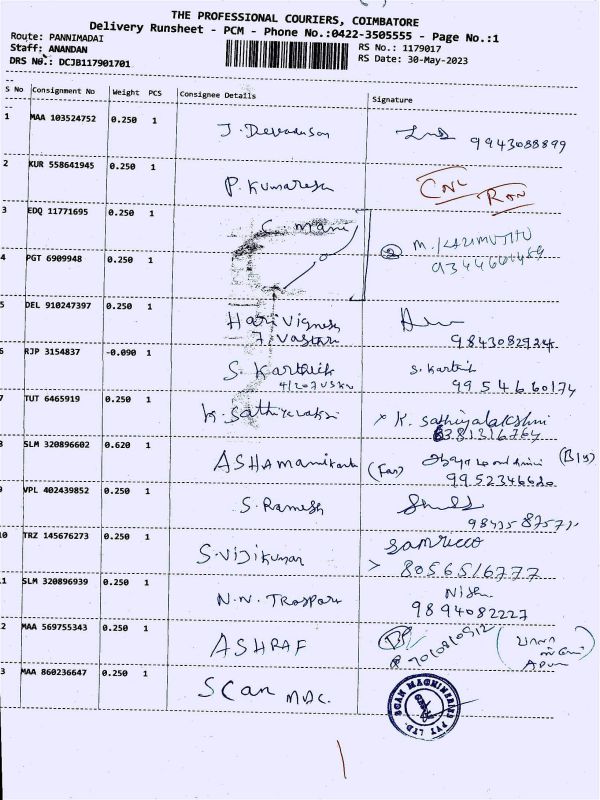 THE PROFESSIONAL COURIERS, COIMBATORE
Delivery Runsheet - PCM - Phone No.:0422-3505555 - Page No.:1
Route: PANNIMADAI
RS No.: 1179017
Staff: ANANDAN
RS Date: 30-May-2023
DRS No.: DCJB117901701
S No Consignment No Weight PCS Consignee Details Signature
1 MAA 103524752 0.250 1 J. Devaduson 9943088899
2 KUR 558641945 0.250 1 P. Kumaresh CNL RTN
3 EDQ 11771695 0.250 1 C. mani
4 PGT 6909948 0.250 1
M. KALIMUTHU
5 DEL 910247397 0.250 1 Hari Vignesh
6 RJP 3154837 -0.090 1 S. Karthik S. Karthik
9954660174
7 TUT 6465919 0.250 1 K. Sathiyalakshmi
6381316764
8 SLM 320896602 0.620 1 ASHA
9952346620
9 VPL 402439852 0.250 1 S. Ramesh
10 TRZ 145676273 0.250 1 S. Vijikumar
8056516777
11 SLM 320896939 0.250 1 N.N. Trasport
9894082227
12 MAA 569755343 0.250 1 ASHRAF
13 MAA 860236647 0.250 1 Scan
SCAN MACHINERIES PVT LTD.